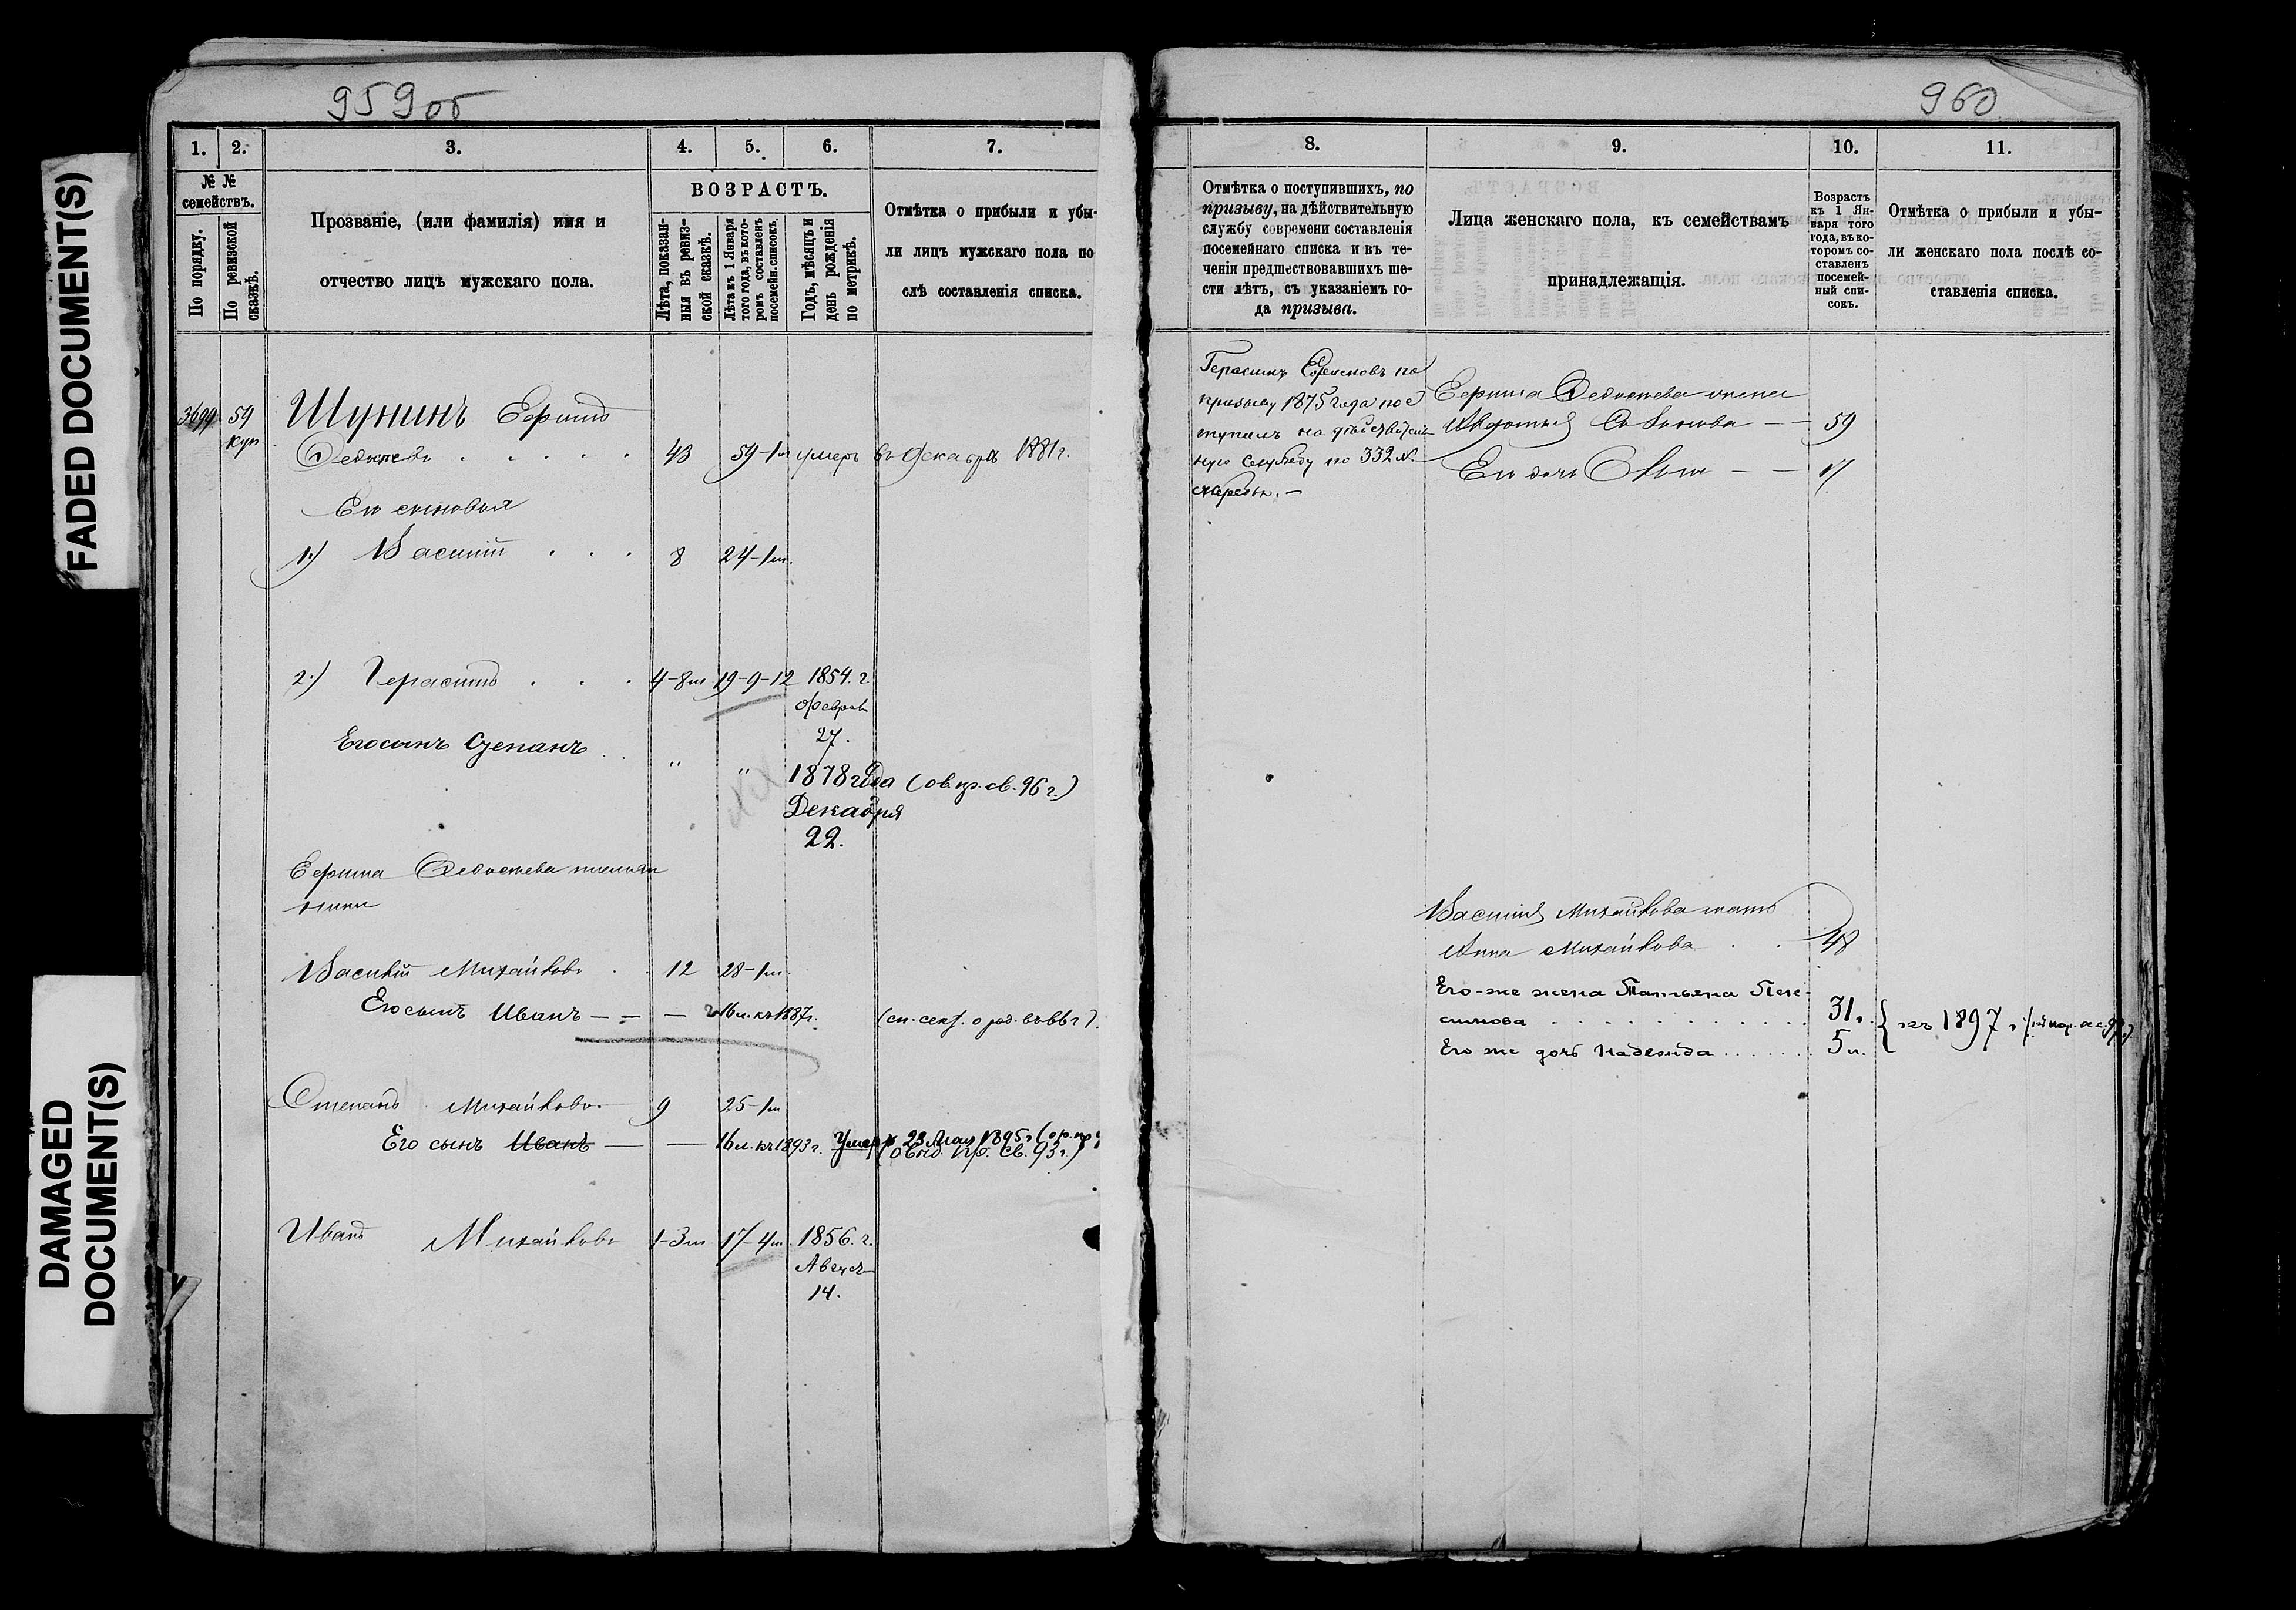 FADED DOCUMENT(S)
DAMAGED
DOCUMENT(S)
959об
1. 2. 3. 4. 5. 6. 7.
№ №
семействъ.
По порядку.
По ревизской
сказкѣ.
Прозваніе, (или фамилія) имя и
отчество лицъ мужскаго пола.
ВОЗРАСТЪ.
Лѣта, показан-
ныя въ ревиз-
ской сказкѣ.
Лѣта къ 1 Января
того года, въ кото-
ромъ составленъ
посемейн. списокъ.
Годъ, мѣсяцъ и
день рожденія
по метрикѣ.
Отмѣтка о прибыли и убы-
ли лицъ мужскаго пола по-
слѣ составленія списка.
59 Шунинъ Ефимъ
куп
43 59-1м умеръ въ Декабрѣ 1881г.
Его сыновья
1.) Василій 8 24-1м.
2.) Герасимъ 4-8м 19-9-12 1854. г.
Феврал
27.
Его сынъ Степанъ " " 1878 года (об. пр. св. 96 г.)
Декабря
22.
Ефима племян
ники
Василій Михайловъ 12 28-1м.
Его сынъ Иванъ — — — 16 л. къ 1887г.
Степанъ Михайловъ 9 25-1м
Его сынъ Иванъ — — 16 л. къ 1893 г. Умеръ 23 Мая 1895 г.
пр. св. 93 г.)
Иванъ Михайловъ 1-3м 17-4м 1856. г.
Август
14.
960
8. 9. 10. 11.
Отмѣтка о поступившихъ, по
призыву, на дѣйствительную
службу современи составленія
посемейнаго списка и въ те-
ченіи предшествовавшихъ ше-
сти лѣтъ, съ указаніемъ го-
да призыва.
Лица женскаго пола, къ семействамъ
принадлежащія.
Возрастъ
къ 1 Ян-
варя того
года, въ ко-
торомъ со-
ставленъ
посемей-
ный спи-
сокъ.
Отмѣтка о прибыли и убы-
ли женскаго пола послѣ со-
ставленія списка.
Герасимъ Ефимовъ по
призыву 1875 года пос
тупилъ на дѣйствитель
ную службу по 332 №
жеребья. —
Ефима жена
Авдотья — — 59
Его дочь — — 17
Василія Михайлова мать
Анна Михайлова 48
Его-же жена Татьяна
симова 31 г.
Его же дочь Надежда 5 л.
къ 1897 г.